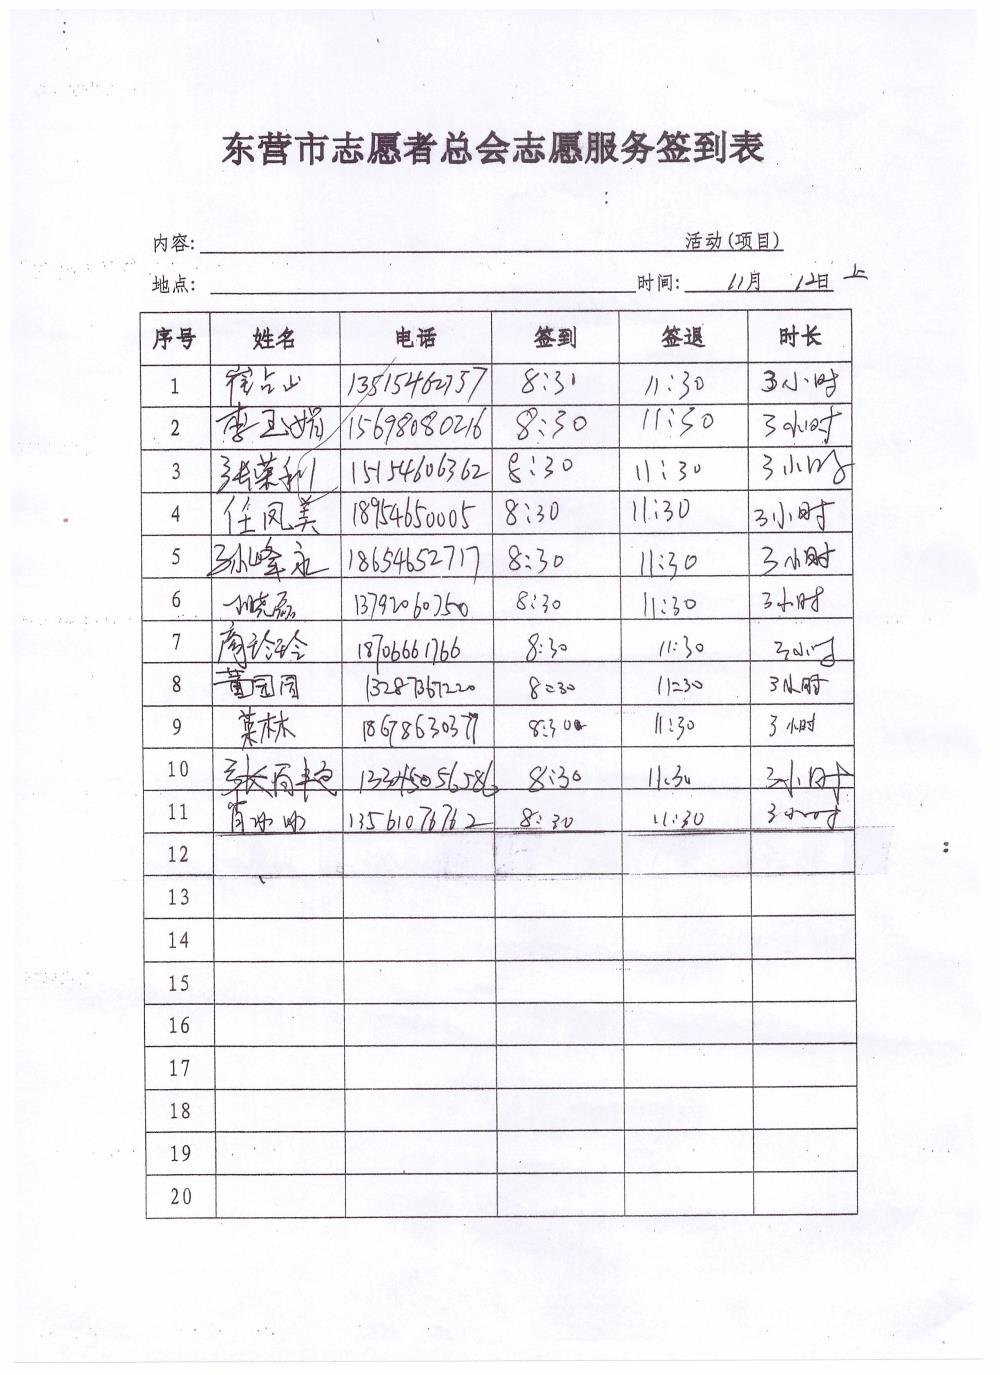 东营市志愿者总会志愿服务签到表
内容: 活动(项目)
地点: 时间: 11月 12日 上
序号 姓名 电话 签到 签退 时长
1 崔占山 13515462737 8:31 11:30 3小时
2 李玉娟 15698080216 8:30 11:30 3小时
3 张荣利 15154606362 8:30 11:30 3小时
4 任凤美 18954650005 8:30 11:30 3小时
5 孙峰永 18654652717 8:30 11:30 3小时
6 晓磊 13792060750 8:30 11:30 3小时
7 商玲玲 18706661766 8:30 11:30 3小时
8 董园园 13287367220 8:30 11:30 3小时
9 葉林 18678630377 8:30 11:30 3小时
10 8:30 11:30 3小时
11 肖冰冰 13561076762 8:30 11:30 3小时
12
13
14
15
16
17
18
19
20